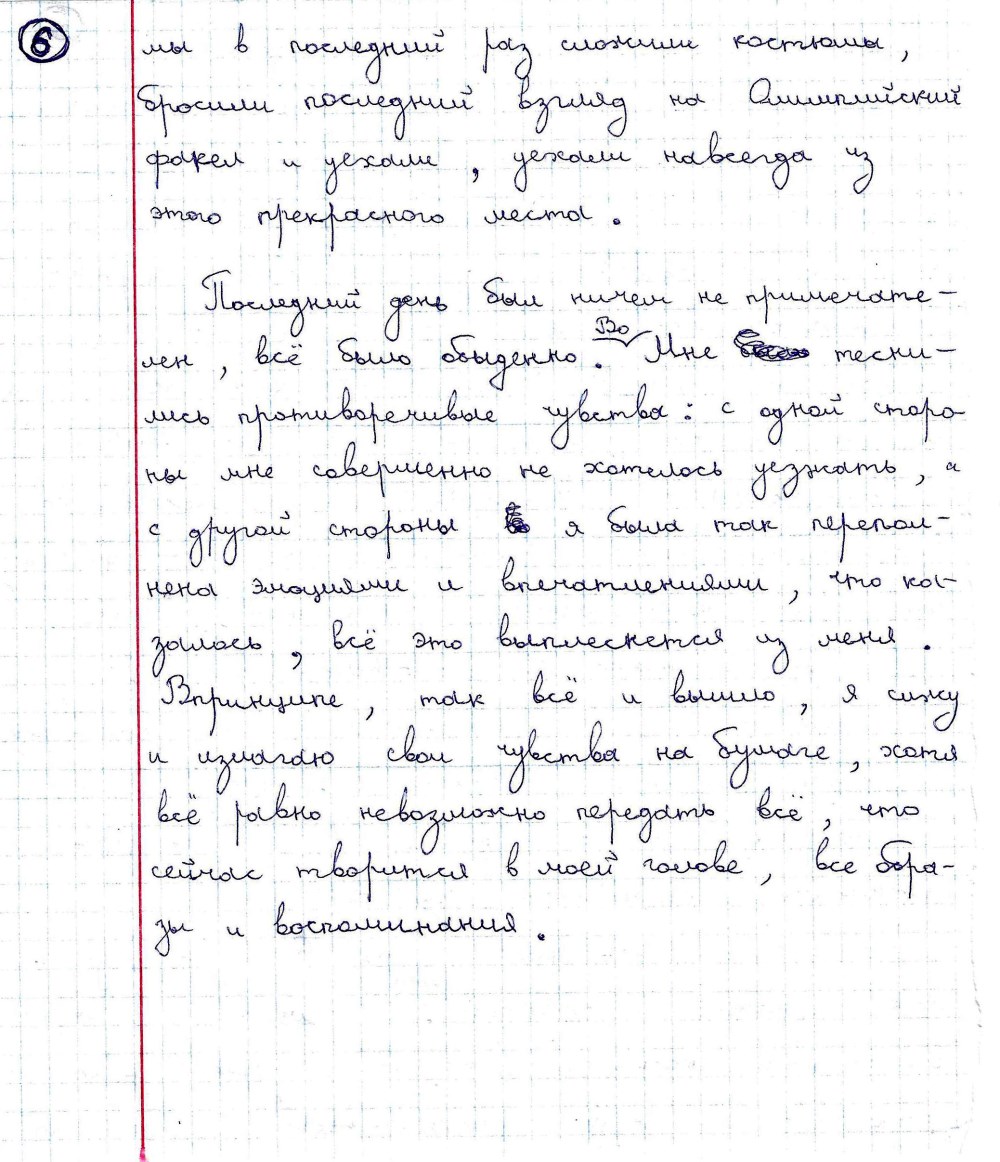 6
мы в последний раз сложили костюмы,
бросили последний взгляд на Олимпийский
факел и уехали, уехали навсегда из
этого прекрасного места.
Последний день был ничем не примечате-
лен, всё было обыденно. Во Мне тесни-
лись противоречивые чувства: с одной сторо-
ны мне совершенно не хотелось уезжать, а
с другой стороны я была так перепол-
нена эмоциями и впечатлениями, что ка-
залось, всё это выплескнется из меня.
Впринципе, так всё и вышло, я сижу
и излагаю свои чувства на бумаге, хотя
всё равно невозможно передать всё, что
сейчас творится в моей голове, все обра-
зы и воспоминания.